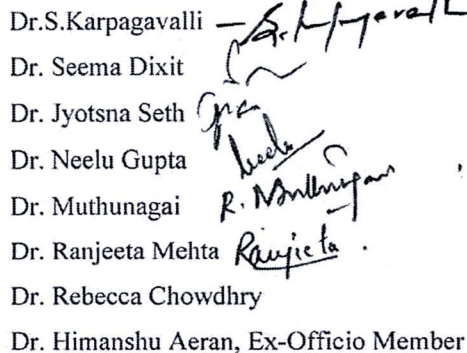 Dr.S.Karpagavalli
Dr. Seema Dixit
Dr. Jyotsna Seth
Dr. Neelu Gupta Neelu
Dr. Muthunagai R. Muthunagai
Dr. Ranjeeta Mehta Ranjeeta
Dr. Rebecca Chowdhry
Dr. Himanshu Aeran, Ex-Officio Member